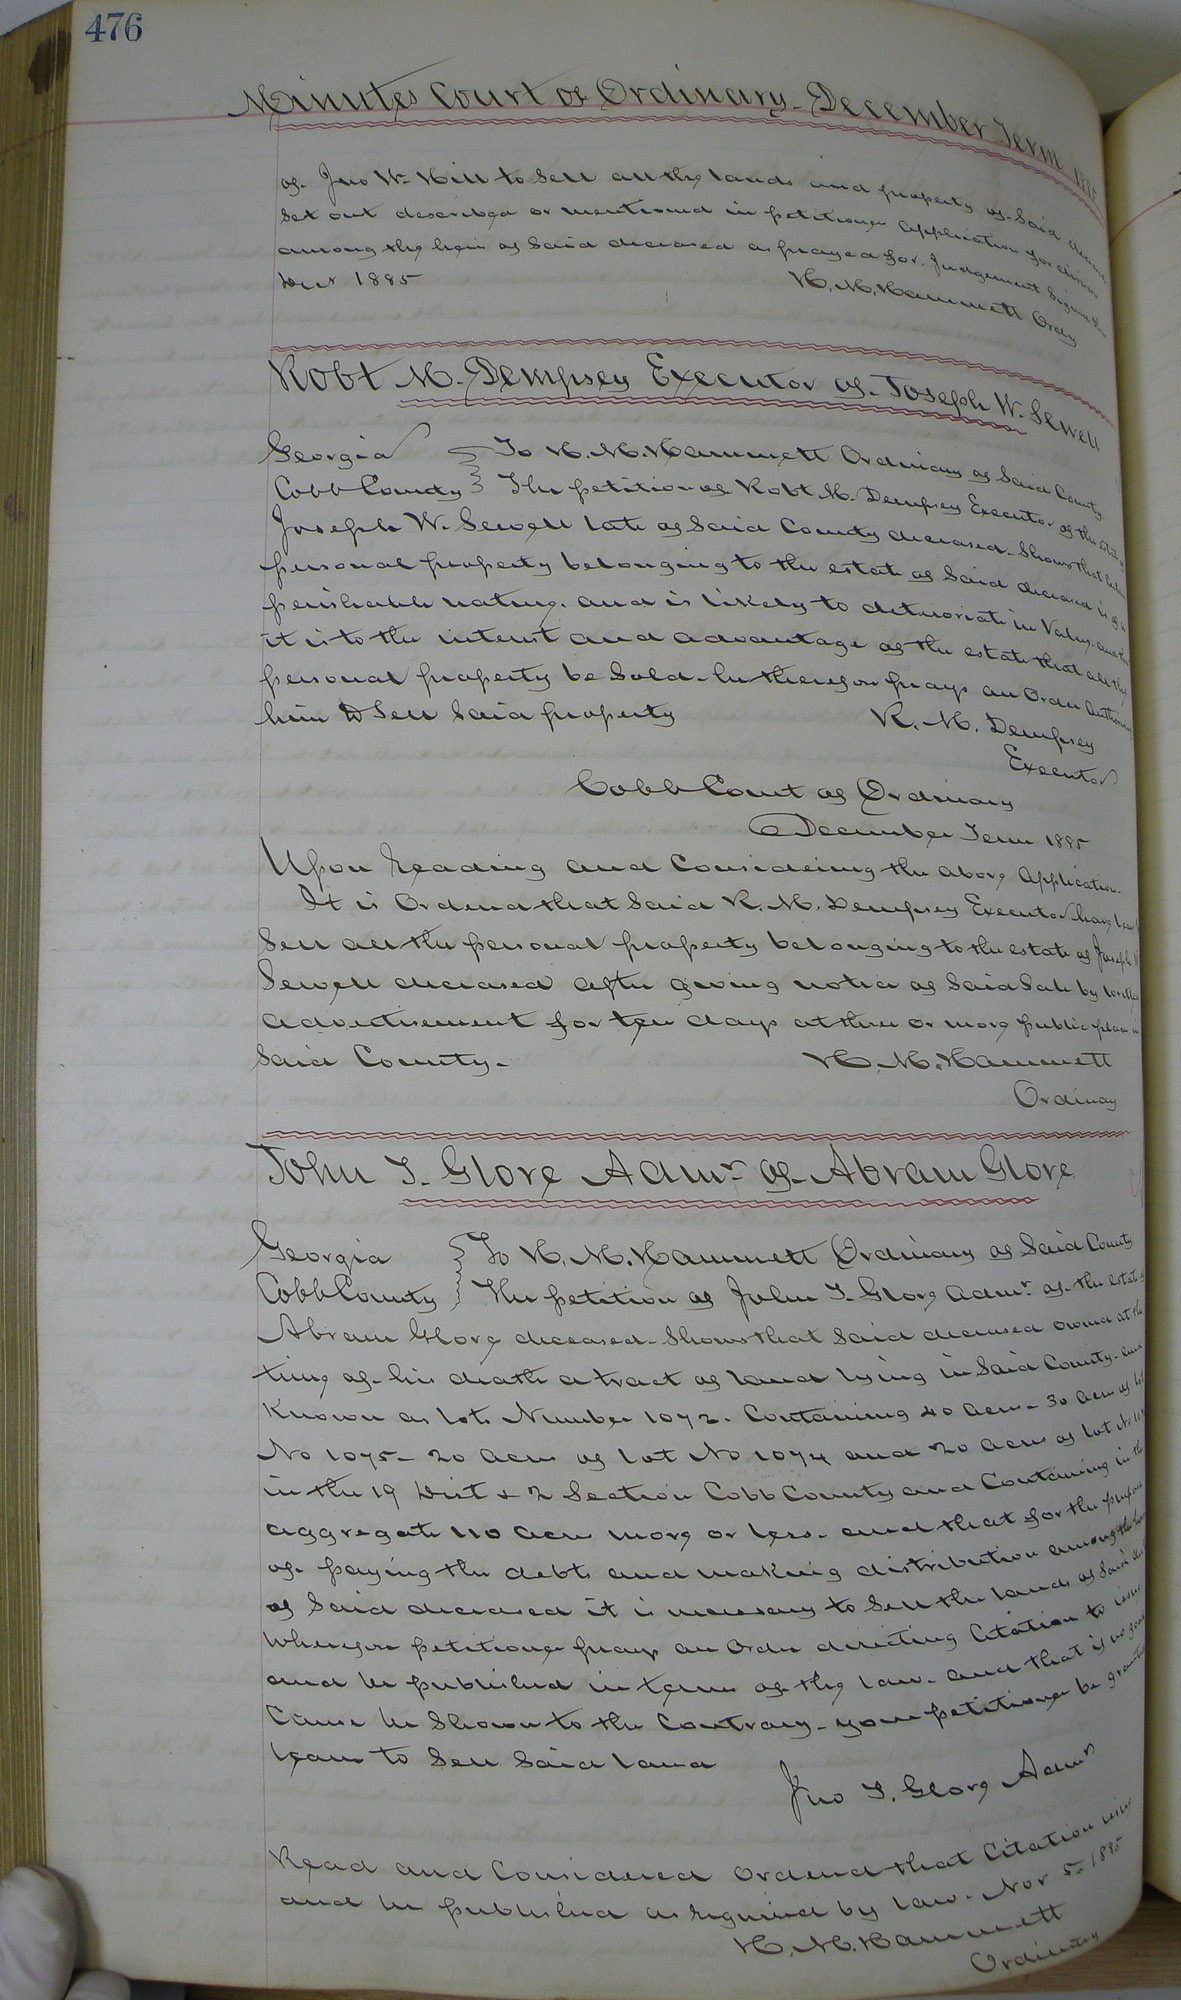 476
Minutes Court of Ordinary - December Term 1885
of Jno W. Hill to Sell all the lands and property of Said deceased
Set out described or mentioned in petitioners application for division
among the heirs of Said deceased as prayed for. Judgement Signed
1885 H. M. Hammett Ordy
Robt M. Dempsey Executor of Joseph W. Sewell
Georgia } To H. M. Hammett Ordinary of Said County.
Cobb County } The petition of Robt M. Dempsey Executor of the estate of
Joseph W. Sewell late of Said County deceased - Shows that
personal property belonging to the estate of Said deceased is of a
perishable nature. and is likely to deterioriate in Value - and that
it is to the interest and advantage of the estate that all the
personal property be Sold - he therefore prays an Order authorizing
him to Sell Said property R. M. Dempsey
Executor
Cobb Court of Ordinary
December Term 1885
Upon hearing and Considering the above application.
It is Ordered that Said R. M. Dempsey Executor have leave
Sell all the personal property belonging to the estate of Joseph W
Sewell deceased after giving notice of Said Sale by written
advertisement for ten days at three or more public places in
Said County. H. M. Hammett
Ordinary
John T. Glore Admr of Abram Glore
Georgia } To H. M. Hammett Ordinary of Said County
Cobb County } The petition of John T. Glore Admr of the estate of
Abram Glore deceased - Shows that Said deceased owned at the
time of his death a tract of land lying in Said County - and
Known as lots Number 1072. Containing 40 acres - 30 acres of lot
No 1075 - 20 acres of lot No 1074 and 20 acres of lot No
in the 19 Dist & 2 Section Cobb County and Containing in the
aggregate 110 acres more or less - and that for the purpose
of paying the debts and making distribution among the heirs
of Said deceased it is necessary to Sell the lands of Said decd
Wherefore petitioner prays an Order directing Citation to issue
and be published in terms of the law - and that if no good
Cause be Shown to the Contrary - your petitioner be granted
leave to Sell Said land
Jno T. Glore Admr
Read and Considered Ordered that Citation issue
and be published as required by law - Nov 5 - 1885
H. M. Hammett
Ordinary